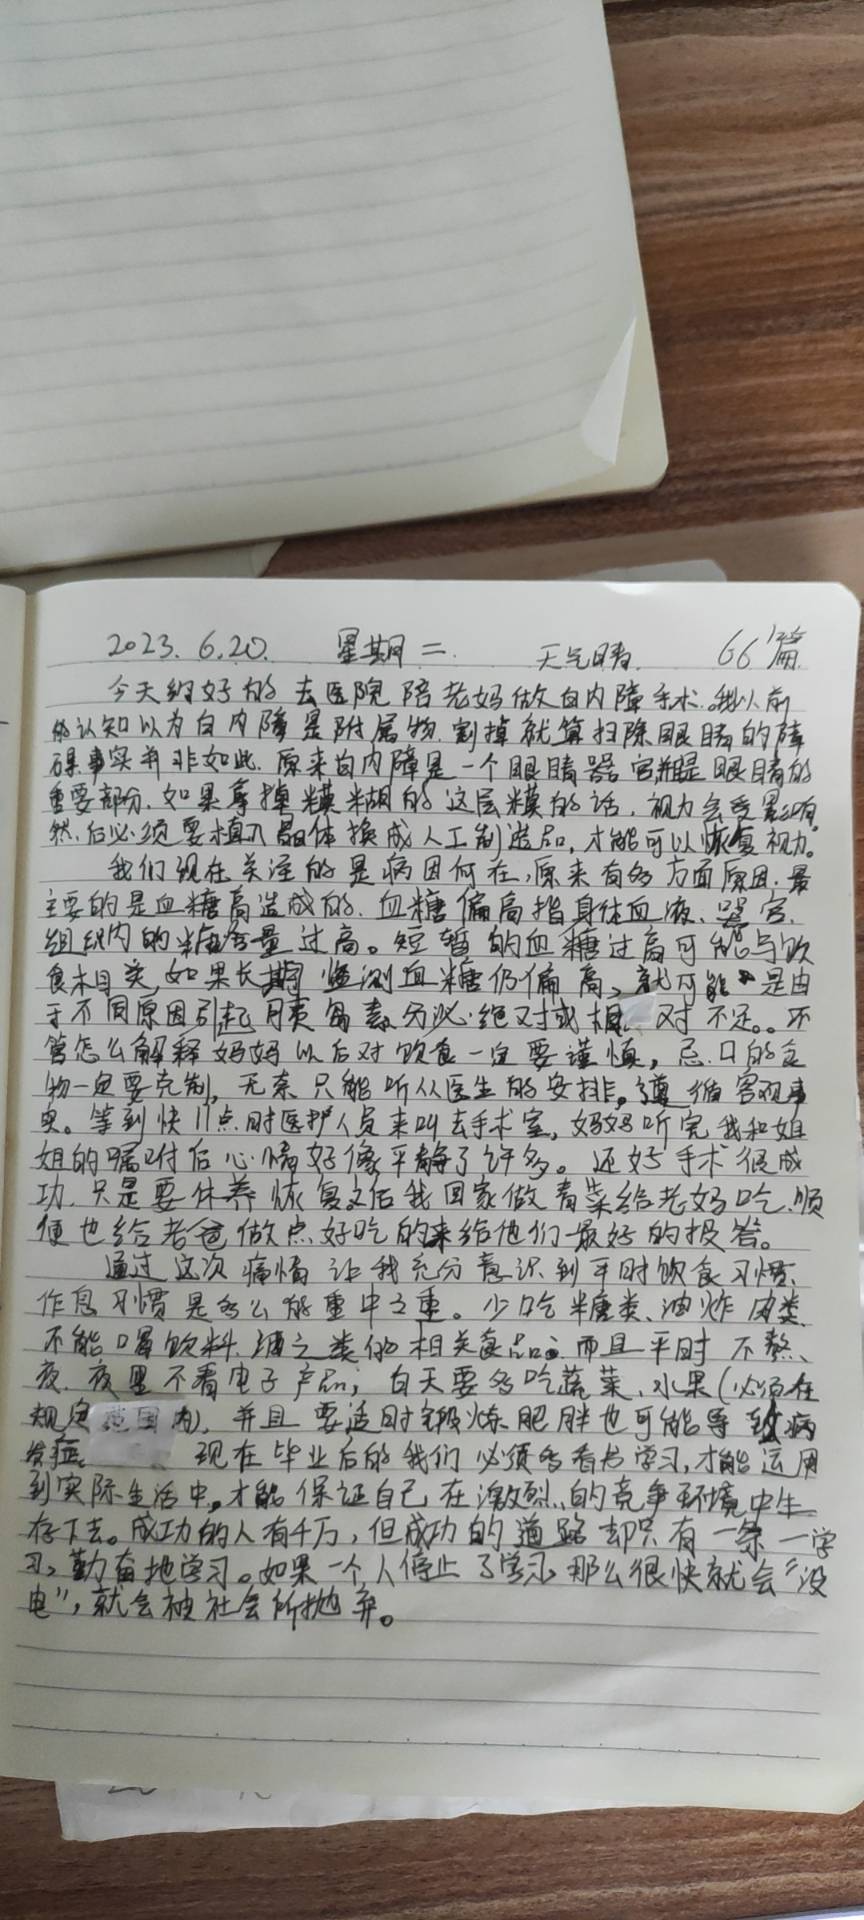 2023.6.20. 星期二. 天气晴. 66篇.
今天约好的去医院陪老妈做白内障手术。我以前
的认知以为白内障是附属物.割掉就算扫除眼睛的障
碍.事实并非如此.原来白内障是一个眼睛器官,并且是眼睛的
重要部分.如果拿掉模糊的这层膜的话,视力会受影响
然后必须要植入晶体换成人工制造品,才能可以恢复视力。
我们现在关注的是病因何在,原来有多方面原因.最
主要的是血糖高造成的.血糖偏高指身体血液、器官、
组织内的糖含量过高。短暂的血糖过高可能与饮
食相关,如果长期监测血糖仍偏高、就可能是由
于不同原因引起胰岛素分泌.绝对或相对不足。不
管怎么解释妈妈以后对饮食一定要谨慎,忌口的食
物一定要克制,无奈只能听从医生的安排。遵循客观事
实。等到快11点时医护人员来叫去手术室,妈妈听完我和姐
姐的嘱咐后心情好像平静了许多。还好手术很成
功.只是要休养恢复.之后我回家做着菜给老妈吃.顺
便也给老爸做点好吃的.来给他们最好的报答。
通过这次痛悟让我充分意识到平时饮食习惯、
作息习惯是多么的重中之重。少吃糖类、油炸肉类.
不能喝饮料.酒之类的相关食品.而且平时不熬
夜.夜里不看电子产品,白天要多吃蔬菜.水果(必须在
规定范围内),并且要适时锻炼.肥胖也可能导致病
发症. 现在毕业后的我们必须多看书学习,才能运用
到实际生活中。才能保证自己在激烈的竞争环境中生
存下去。成功的人有千万,但成功的道路却只有一条一学
习,勤奋地学习。如果一个人停止了学习,那么很快就会"没
电",就会被社会所抛弃。